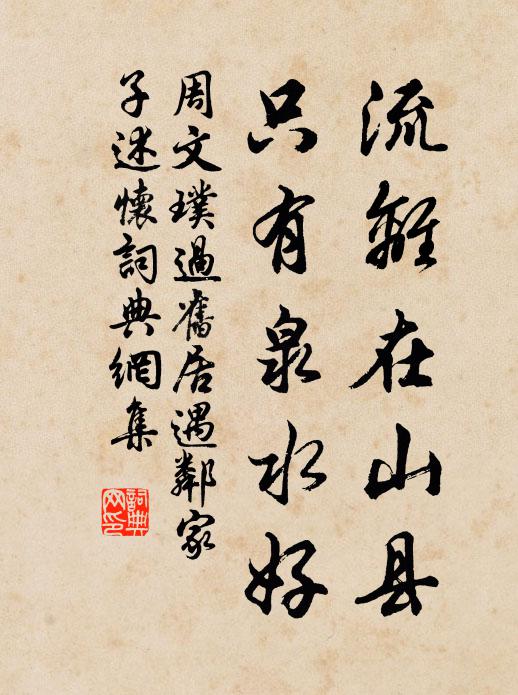 流離在山县
只有泉水好
周文璞過舊居遇鄰家
子述懷詞典網集
詞典网印